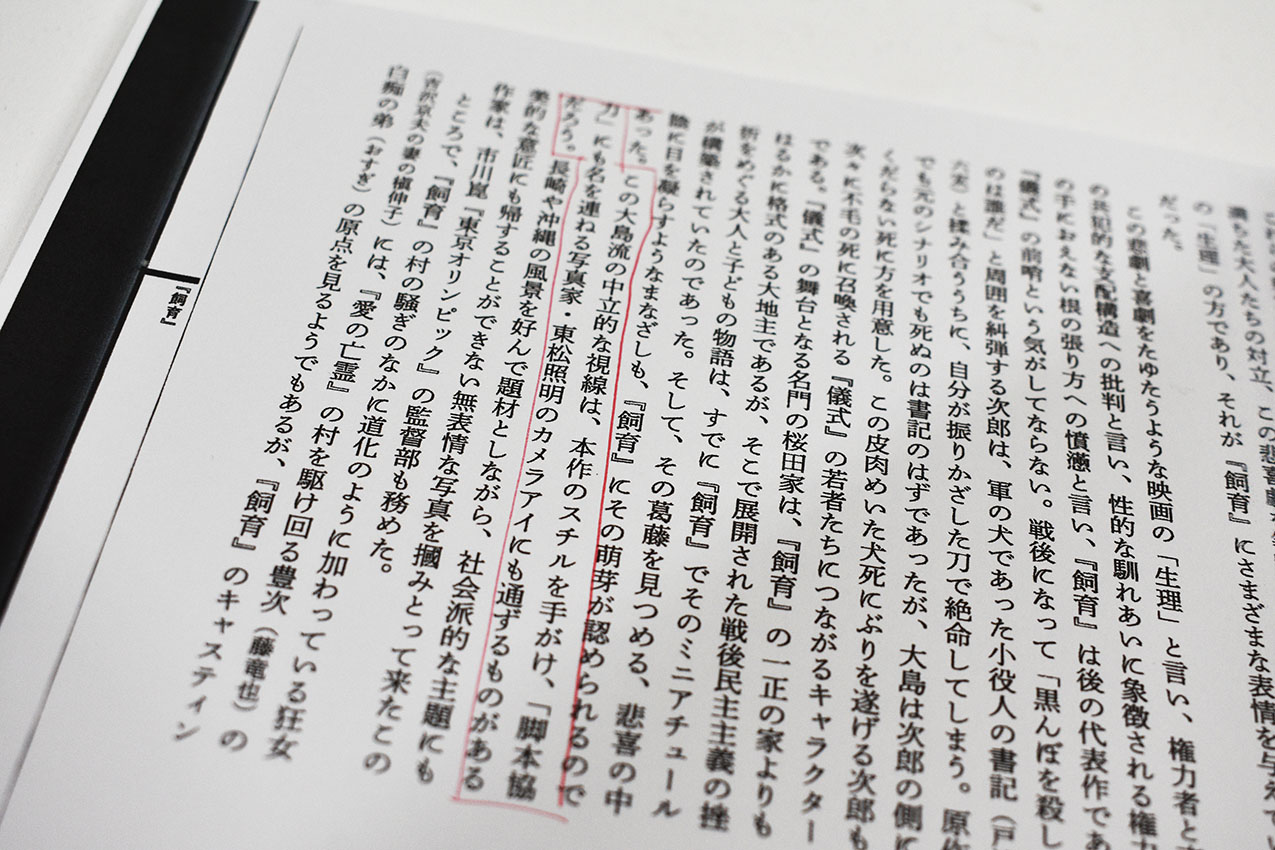 満ちた大人たちの対立、この悲喜劇
の「生理」の方であり、それが『飼育』にさまざまな表情を与えてい
だった。
この悲劇と喜劇をたゆたうような映画の「生理」と言い、権力者と
の共犯的な支配構造への批判と言い、性的な馴れあいに象徴される権力
の手におえない根の張り方への憤懣と言い、『飼育』は後の代表作であ
『儀式』の前哨という気がしてならない。戦後になって「黒んぼを殺し
のは誰だ」と周囲を糾弾する次郎は、軍の犬であった小役人の書記（戸
六宏）と揉み合ううちに、自分が振りかざした刀で絶命してしまう。原作
でも元のシナリオでも死ぬのは書記のはずであったが、大島は次郎の側に
くだらない死に方を用意した。この皮肉めいた犬死にぶりを遂げる次郎も
次々に不毛の死に召喚される『儀式』の若者たちにつながるキャラクター
である。『儀式』の舞台となる名門の桜田家は、『飼育』の一正の家よりも
はるかに格式のある大地主であるが、そこで展開された戦後民主主義の挫
折をめぐる大人と子どもの物語は、すでに『飼育』でそのミニアチュール
が構築されていたのであった。そして、その葛藤を見つめる、悲喜の中
陰に目を凝らすようなまなざしも、『飼育』にその萌芽が認められるので
あった。この大島流の中立的な視線は、本作のスチルを手がけ、「脚本協
力」にも名を連ねる写真家・東松照明のカメラアイにも通ずるものがある
だろう。長崎や沖縄の風景を好んで題材としながら、社会派的な主題にも
美的な意匠にも帰することができない無表情な写真を摑みとって来たこの
作家は、市川崑『東京オリンピック』の監督部も務めた。
ところで、『飼育』の村の騒ぎのなかに道化のように加わっている狂女
（吉沢京夫の妻の槇伸子）には、『愛の亡霊』の村を駆け回る豊次（藤竜也）の
白痴の弟（おすぎ）の原点を見るようでもあるが、『飼育』のキャスティン
『飼育』